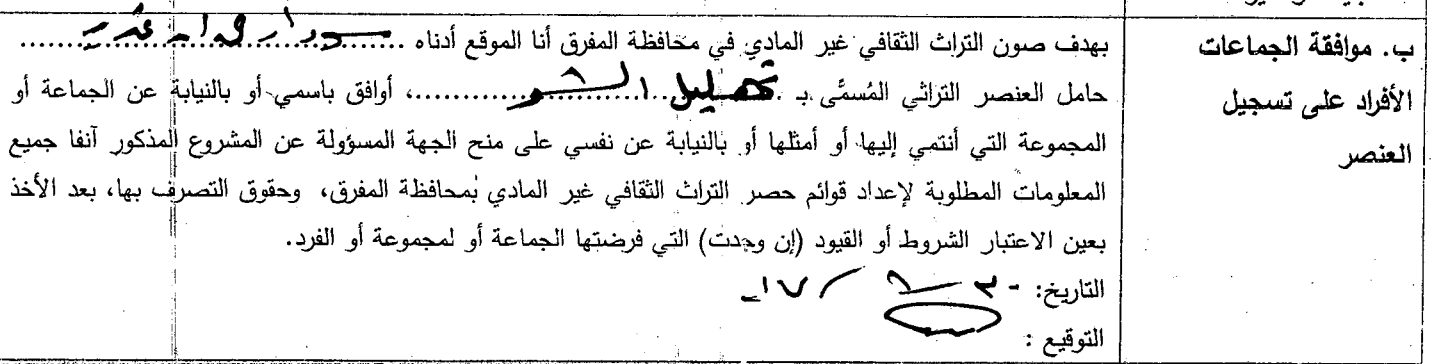 ب. موافقة الجماعات
الأفراد على تسجيل
العنصر
بهدف صون التراث الثقافي غير المادي في محافظة المفرق أنا الموقع أدناه
حامل العنصر التراثي المُسمَّى بـ ................، أوافق باسمي أو بالنيابة عن الجماعة أو
المجموعة التي أنتمي إليها أو أمثلها أو بالنيابة عن نفسي على منح الجهة المسؤولة عن المشروع المذكور آنفا جميع
المعلومات المطلوبة لإعداد قوائم حصر التراث الثقافي غير المادي بمحافظة المفرق، وحقوق التصرف بها، بعد الأخذ
بعين الاعتبار الشروط أو القيود (إن وجدت) التي فرضتها الجماعة أو لمجموعة أو الفرد.
التاريخ:
التوقيع :